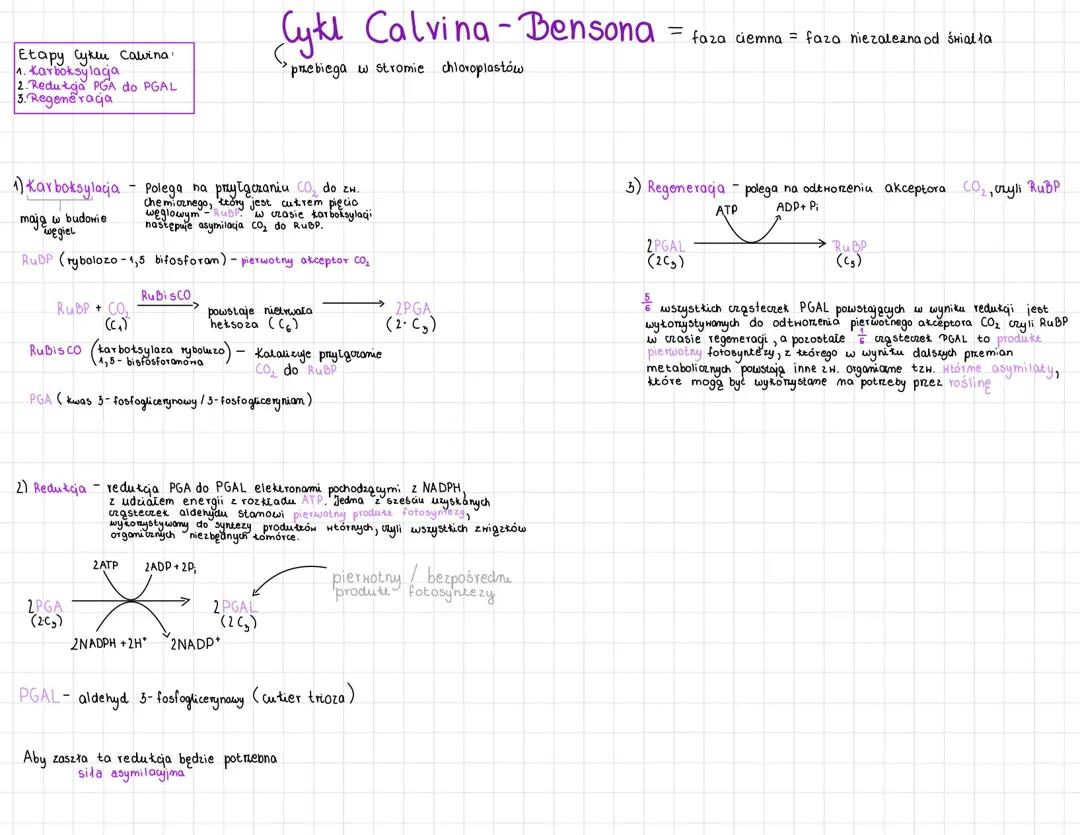 Cykl Calvina-Bensona = faza ciemna = faza niezależna od światła
przebiega w stromie chloroplastów
Etapy Cyklu Calvina:
1. Karboksylacja
2. Redukcja PGA do PGAL
3. Regeneracja
1) Karboksylacja - Polega na przyłączaniu CO₂ do zw.
chemicznego, który jest cukrem pięcio
węglowym - RuBP. W czasie karboksylacji
następuje asymilacja CO₂ do RuBP.
mają w budowie
węgiel
RuBP (rybolozo-1,5 bifosforan) - pierwotny akceptor CO₂
RuBP + CO₂ RuBisCO powstaje nietrwała 2PGA
(C₁) heksoza (C₆) (2·C₃)
RuBisCO (karboksylaza rybulozo) - Katalizuje przyłączanie
1,5-bisfosforanowa CO₂ do RuBP
PGA (kwas 3-fosfoglicerynowy / 3-fosfogliceryniam)
2) Redukcja - redukcja PGA do PGAL elektronami pochodzącymi z NADPH,
z udziałem energii z rozkładu ATP. Jedna z sześciu uzyskanych
cząsteczek aldehydu stanowi pierwotny produkt fotosyntezy,
wykorzystywany do syntezy produktów wtórnych, czyli wszystkich związków
organicznych niezbędnych komórce.
2ATP 2ADP+2Pᵢ
pierwotny / bezpośredni
produkt fotosyntezy
2PGA 2PGAL
(2C₃) (2C₃)
2NADPH+2H⁺ 2NADP⁺
PGAL - aldehyd 3-fosfoglicerynowy (cukier trioza)
Aby zaszła ta redukcja będzie potrzebna
siła asymilacyjna
3) Regeneracja - polega na odtworzeniu akceptora CO₂, czyli RuBP
ATP ADP+Pᵢ
2PGAL RuBP
(2C₃) (C₅)
5/6 wszystkich cząsteczek PGAL powstających w wyniku redukcji jest
wykorzystywanych do odtworzenia pierwotnego akceptora CO₂ czyli RuBP
w czasie regeneracji, a pozostałe 1/6 cząsteczek PGAL to produkt
pierwotny fotosyntezy, z którego w wyniku dalszych przemian
metabolicznych powstają inne zw. organiczne tzw. wtórne asymilaty,
które mogą być wykorzystane na potrzeby przez roślinę